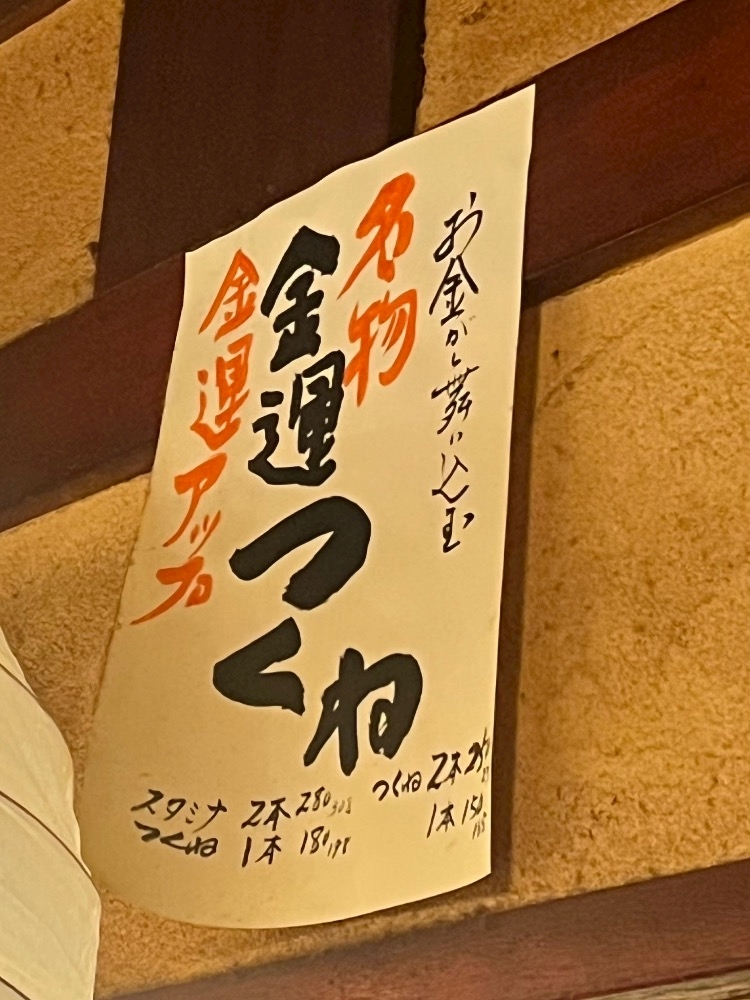 お金が舞い込む玉
名物
金運つくね
金運アップ
つくね 2本 250
1本 150 165
スタミナつくね 2本 280 308
1本 180 198